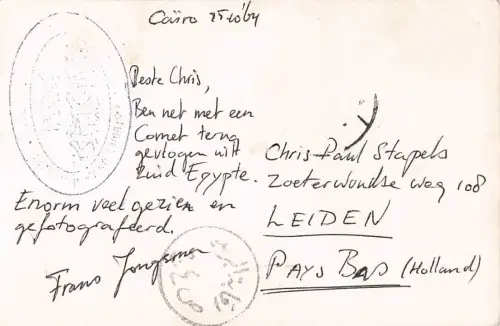 Caïro 25 10 '64
Beste Chris,
Ben net met een
Comet terug
gevlogen uit
Zuid Egypte.
Enorm veel gezien en
gefotografeerd.
Frans Jongsma
Chris-Paul Stapels
Zoeterwoudse weg 108
LEIDEN
PAYS BAS (Holland)